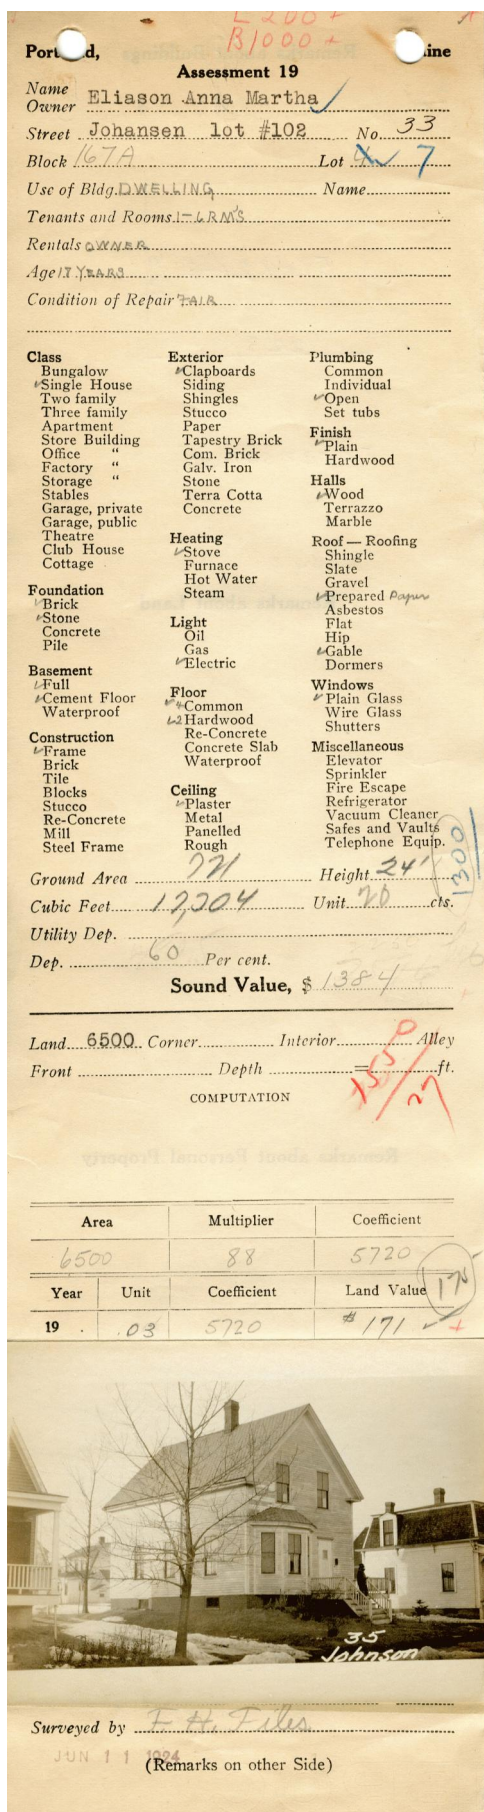 L 200 +
B 1000 +
Portland, Maine
Assessment 19
Name
Owner Eliason Anna Martha
Street Johansen lot #102 No. 33
Block 167A Lot 7
Use of Bldg. DWELLING Name
Tenants and Rooms 1-6 RM'S
Rentals OWNER
Age 17 YEARS
Condition of Repair FAIR
Class
Bungalow
✓Single House
Two family
Three family
Apartment
Store Building
Office "
Factory "
Storage "
Stables
Garage, private
Garage, public
Theatre
Club House
Cottage
Foundation
✓Brick
✓Stone
Concrete
Pile
Basement
✓Full
✓Cement Floor
Waterproof
Construction
✓Frame
Brick
Tile
Blocks
Stucco
Re-Concrete
Mill
Steel Frame
Exterior
✓Clapboards
Siding
Shingles
Stucco
Paper
Tapestry Brick
Com. Brick
Galv. Iron
Stone
Terra Cotta
Concrete
Heating
✓Stove
Furnace
Hot Water
Steam
Light
Oil
Gas
✓Electric
Floor
✓4 Common
✓2 Hardwood
Re-Concrete
Concrete Slab
Waterproof
Ceiling
✓Plaster
Metal
Panelled
Rough
Plumbing
Common
Individual
✓Open
Set tubs
Finish
✓Plain
Hardwood
Halls
✓Wood
Terrazzo
Marble
Roof — Roofing
Shingle
Slate
Gravel
✓Prepared Paper
Asbestos
Flat
Hip
✓Gable
Dormers
Windows
✓Plain Glass
Wire Glass
Shutters
Miscellaneous
Elevator
Sprinkler
Fire Escape
Refrigerator
Vacuum Cleaner
Safes and Vaults
Telephone Equip.
1300
Ground Area 721 Height 24'
Cubic Feet 17,304 Unit 20 cts.
Utility Dep.
Dep. 60 Per cent.
Sound Value, $ 1384
Land 6500 Corner Interior Alley
Front Depth = ft.
1550/27
COMPUTATION
Area Multiplier Coefficient
6500 88 5720
Year Unit Coefficient Land Value 175
19 .03 5720 # 171 ✓ +
35
Johnson
Surveyed by F. H. Files
JUN 11 1924
(Remarks on other Side)